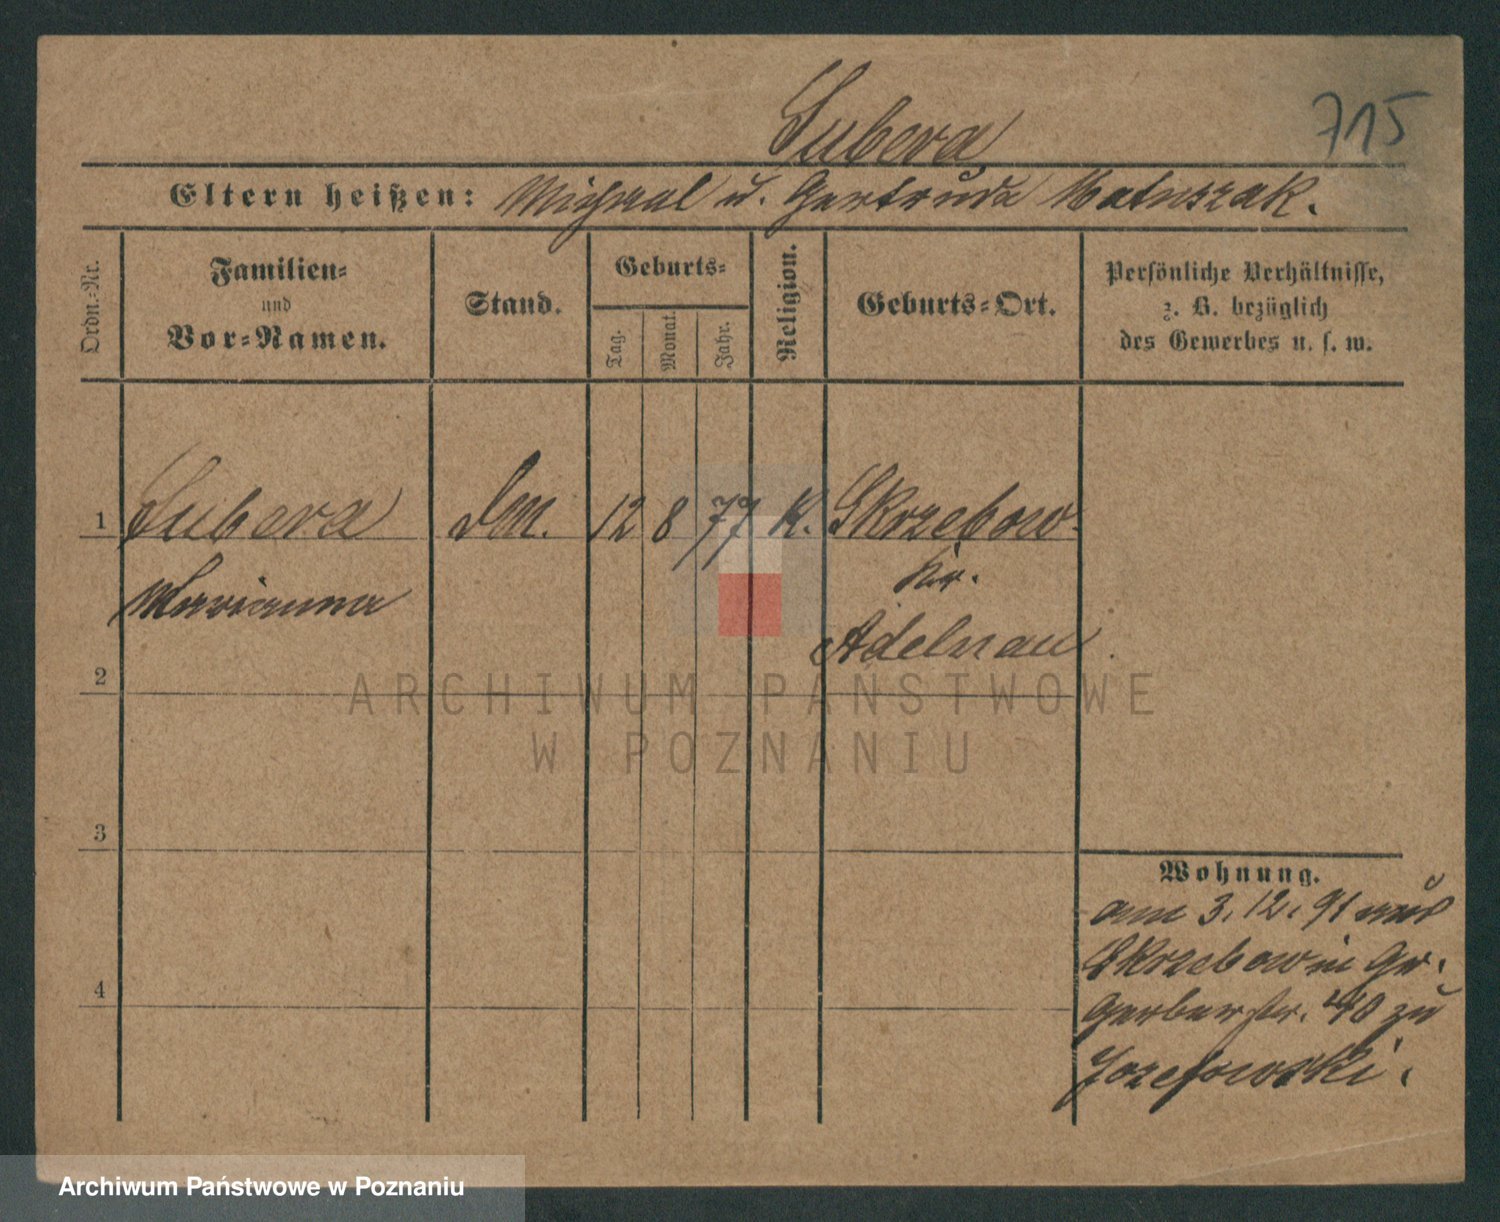 Subera
715
Eltern heißen: Michael u. Gertruda Matuszak.
Ordn.-Nr.
Familien-
und
Vor-Namen.
Stand.
Geburts-
Tag.
Monat.
Jahr.
Religion.
Geburts-Ort.
Persönliche Verhältnisse,
z. B. bezüglich
des Gewerbes u. s. w.
1 Subera 12 8 77 K. Skrzebow
Marianna Kr.
Adelnau.
2
ARCHIWUM PAŃSTWOWE
W POZNANIU
3
4
Wohnung.
am 3. 12. 91 aus
Skrzebow in Gr.
Gerberstr. 40 zu
Jozefowski.
Archiwum Państwowe w Poznaniu